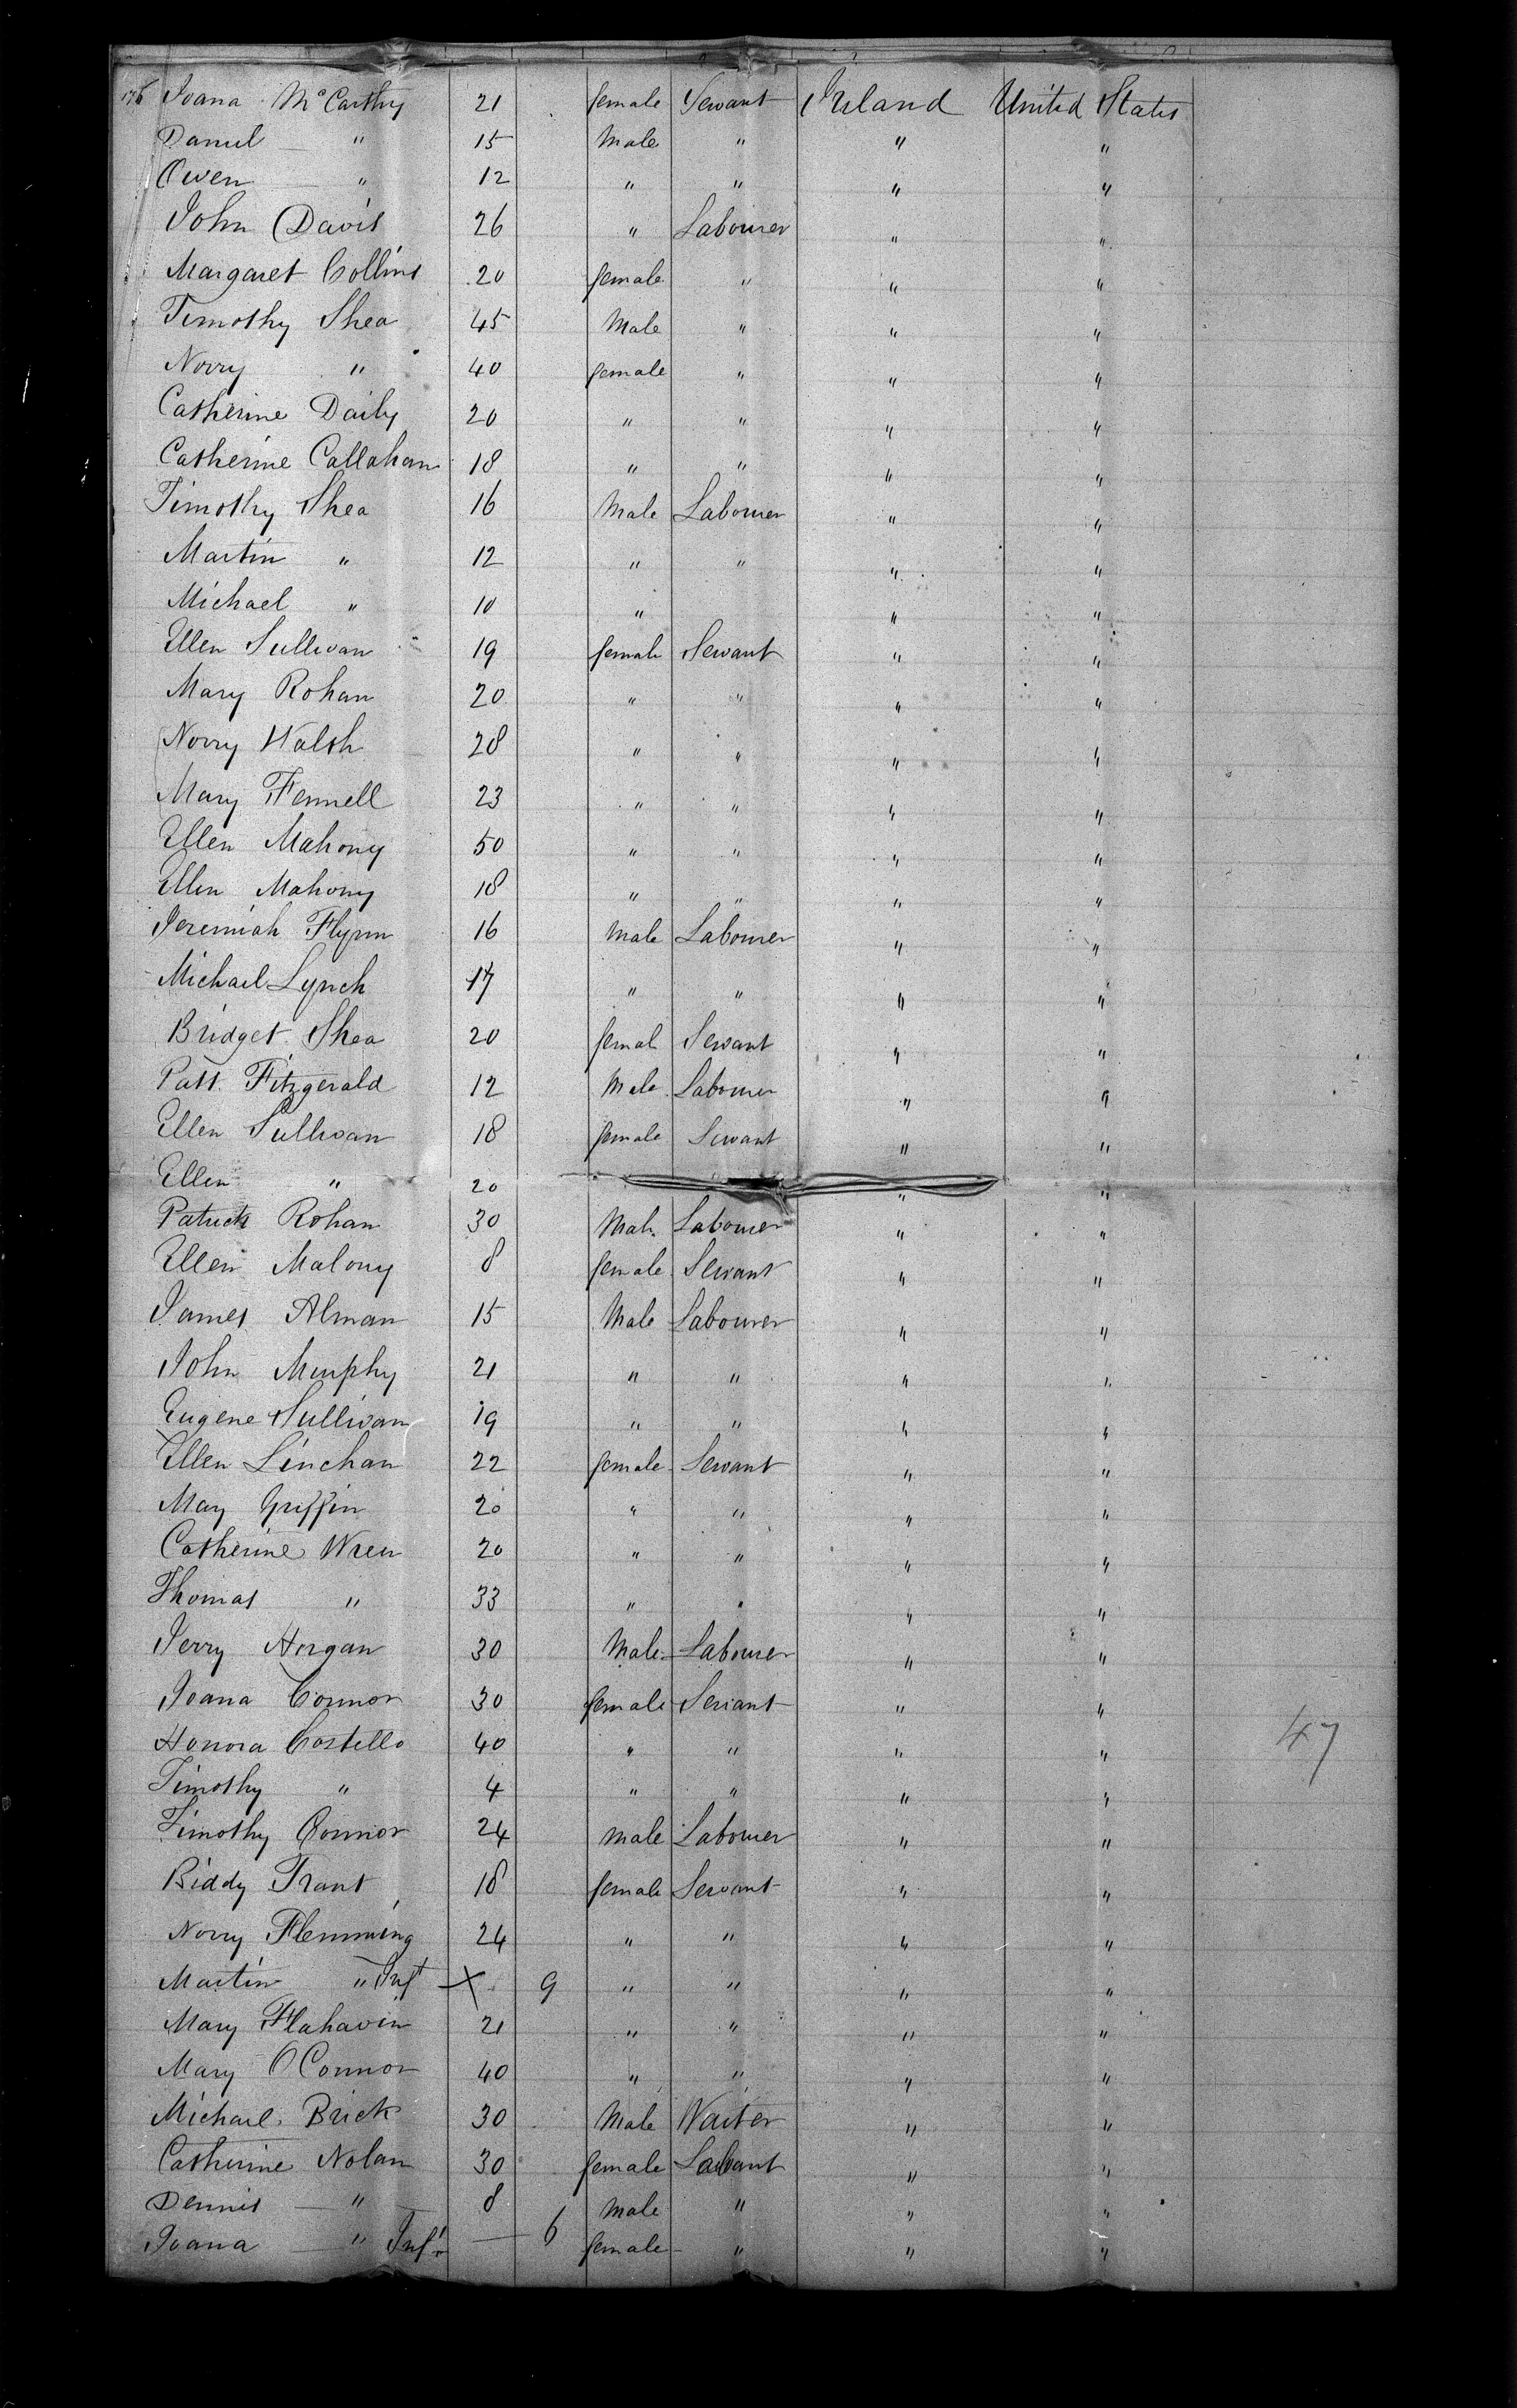 176 Joana McCarthy 21 female Servant Ireland United States
Daniel — " 15 Male " " "
Owen — " 12 " " " "
John Davis 26 " Labourer " "
Margaret Collins 20 female " " "
Timothy Shea 45 Male " " "
Norry " 40 female " " "
Catherine Daily 20 " " " "
Catherine Callahan 18 " " " "
Timothy Shea 16 Male Labourer " "
Martin " 12 " " " "
Michael " 10 " " "
Ellen Sullivan 19 female Servant " "
Mary Rohan 20 " " " "
Norry Walsh 28 " " " "
Mary Fennell 23 " " " "
Ellen Mahony 50 " " " "
Ellen Mahony 18 " " " "
Jeremiah Flynn 16 Male Labourer " "
Michael Lynch 17 " " " "
Bridget Shea 20 femal Servant " "
Patt. Fitzgerald 12 Male Labourer " "
Ellen Sullivan 18 female Servant " "
Ellen " 20 " "
Patrick Rohan 30 Male Labourer " "
Ellen Malony 8 female Servant " "
James Alman 15 Male Labourer " "
John Murphy 21 " " " "
Eugene Sullivan 19 " " " "
Ellen Linehan 22 female Servant " "
May Griffin 20 " " " "
Catherine Wren 20 " " " "
Thomas " 33 " " " "
Jerry Horgan 30 Male Labourer " "
Joana Connor 30 female Servant " "
Honora Costello 40 " " " " 47
Timothy " 4 " " " "
Timothy Connor 24 male Labourer " "
Biddy Trant 18 female Servant " "
Norry Flemming 24 " " " "
Martin " Inft X 9 " " " "
Mary Flahavin 21 " " " "
Mary O'Connor 40 " " " "
Michael Brick 30 Male Waiter " "
Catherine Nolan 30 female " "
Dennis — " 8 Male " " "
Joana — " Inft — 6 female " " "